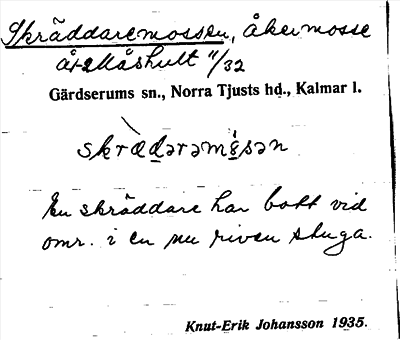 Skräddaremossen, åkermosse
åt Måshult 11/32
Gärdserums sn., Norra Tjusts hd., Kalmar l.
skrædərəmɷsən
En skräddare har bott vid
omr. i en nu riven stuga.
Knut-Erik Johansson 1935.